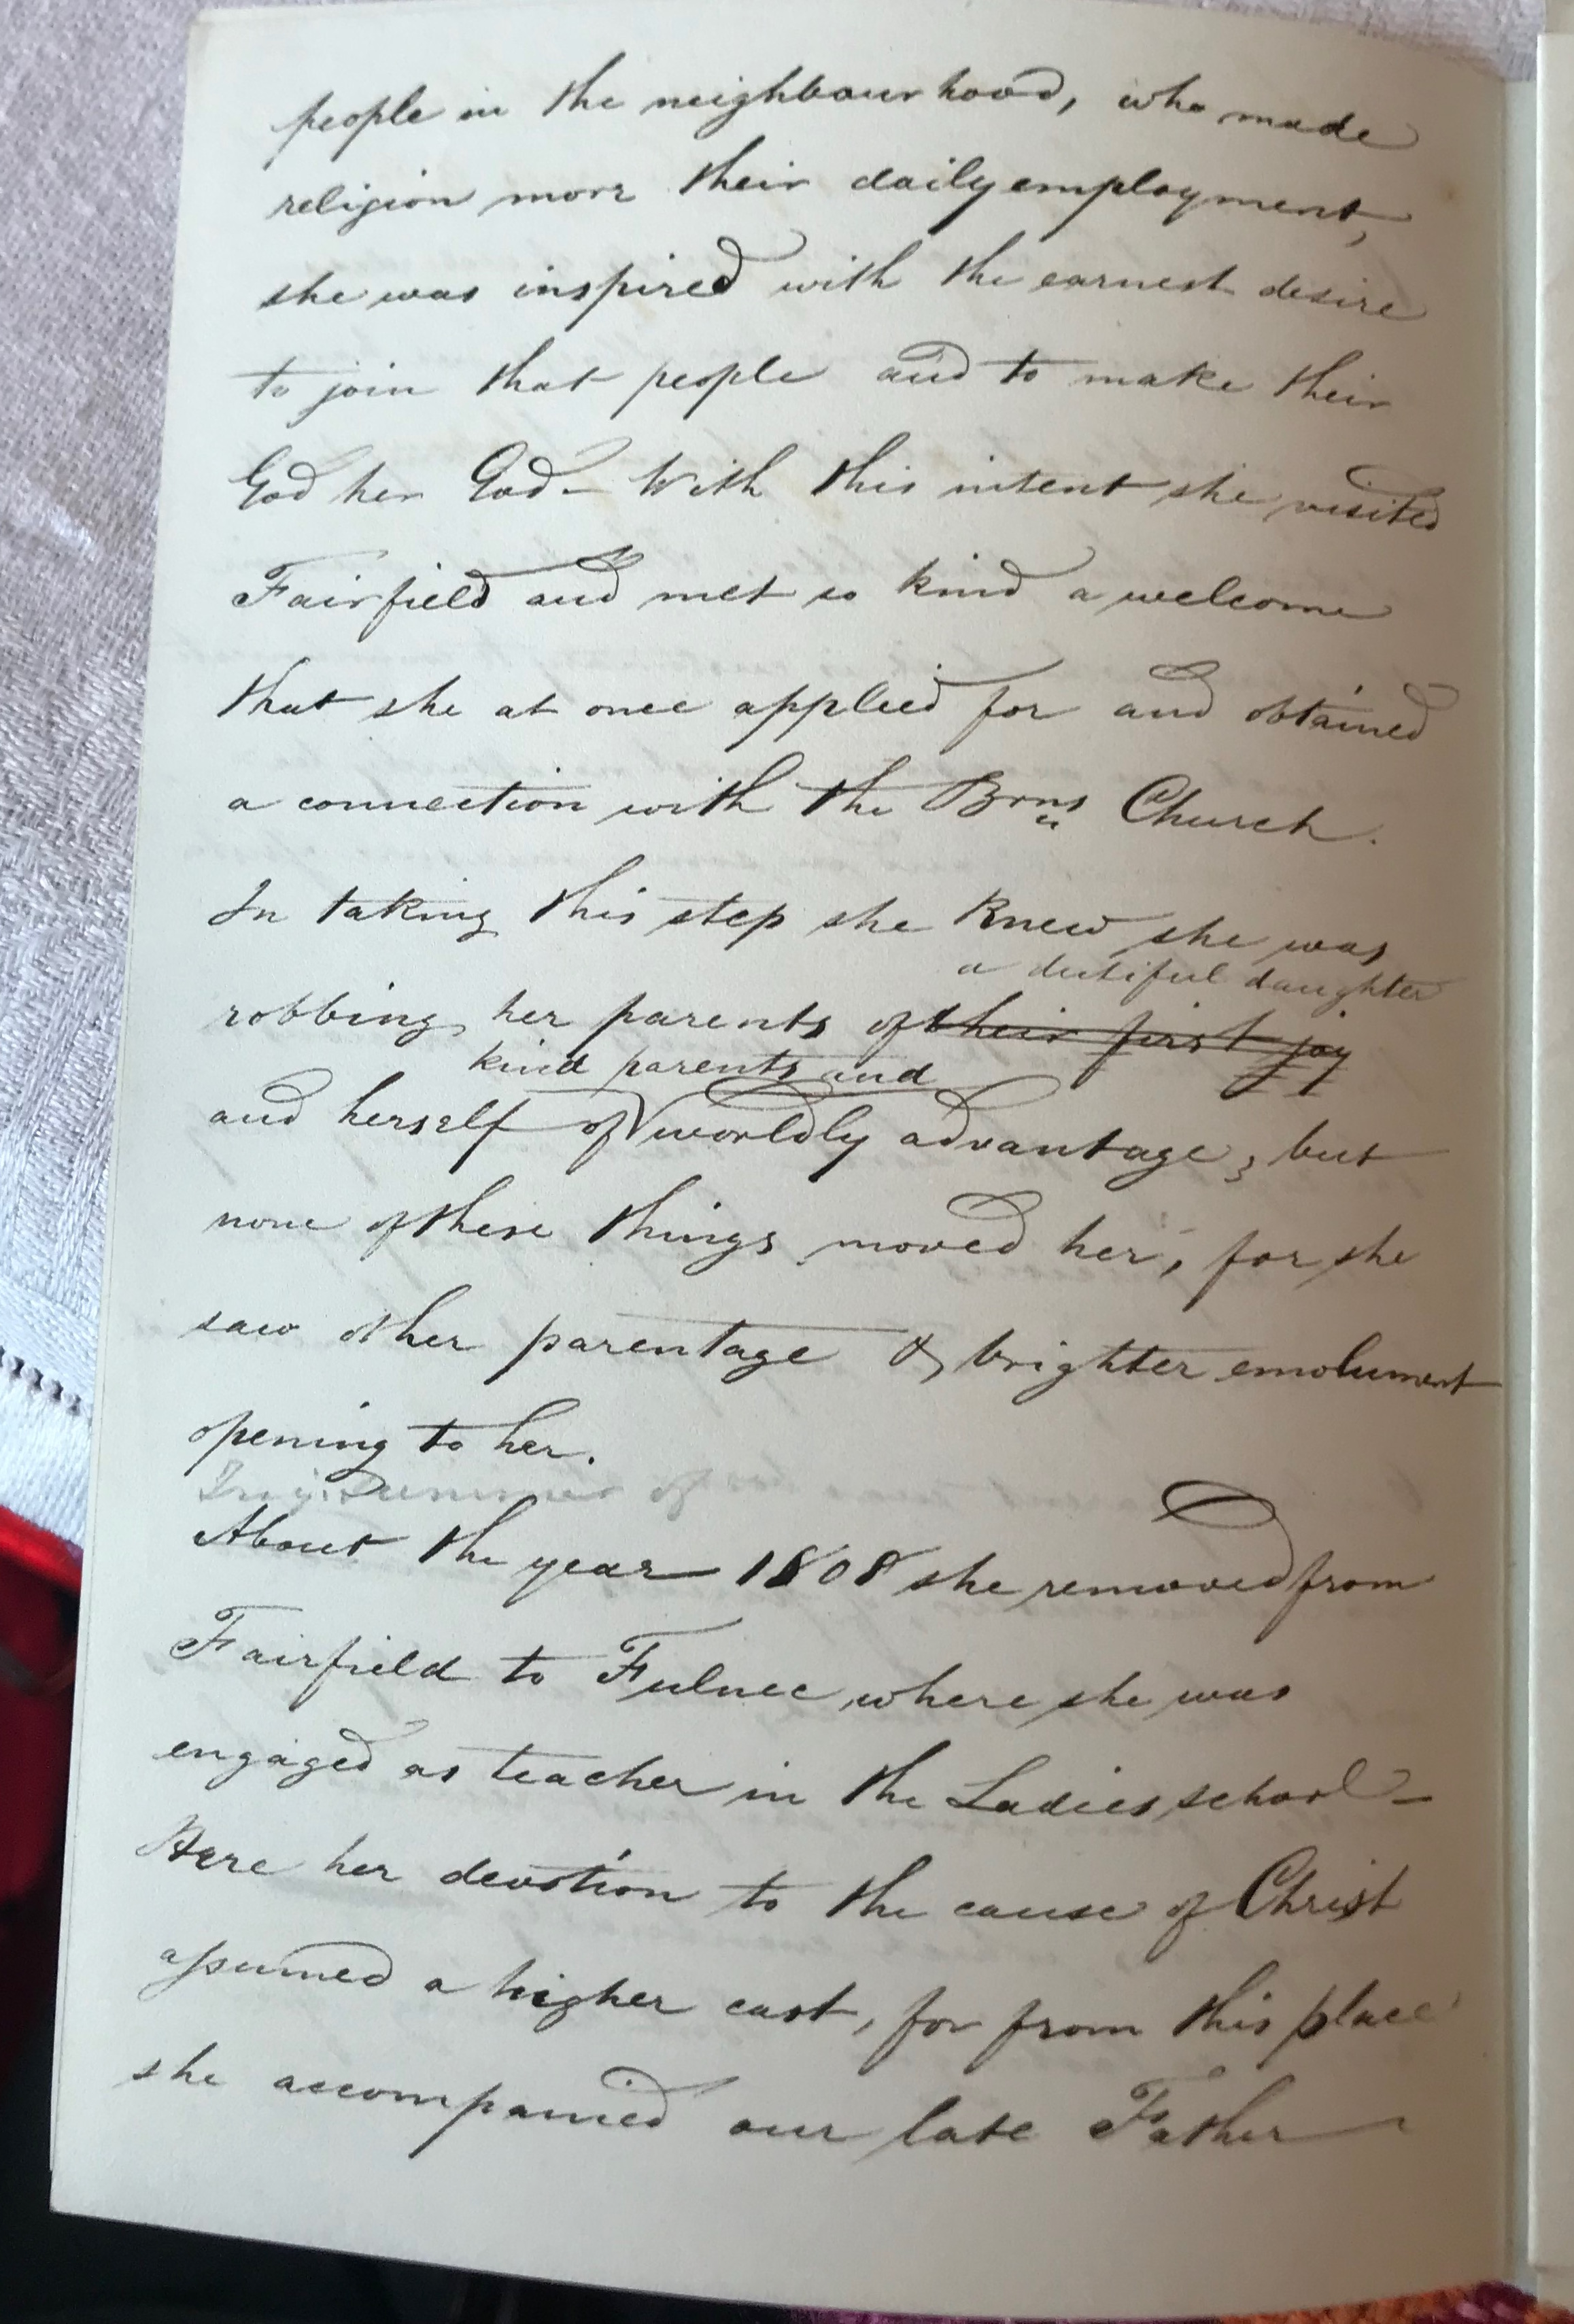 people in the neighbourhood, who made
religion more their daily employment,
she was inspired with the earnest desire
to join that people and to make their
God her God - With this intent she visited
Fairfield and met so kind a welcome
that she at once applied for and obtained
a connection with the Brns Church.
In taking this step she knew she was
a dutiful daughter
robbing her parents of their first joy
kind parents and
and herself of worldly advantage, but
none of these things moved her, for she
saw other parentage & brighter emolument
opening to her.
summer of
About the year 1808 she removed from
Fairfield to Fulnec where she was
engaged as teacher in the Ladies school -
Here her devotion to the cause of Christ
assumed a higher cast, for from this place
she accompanied our late Father